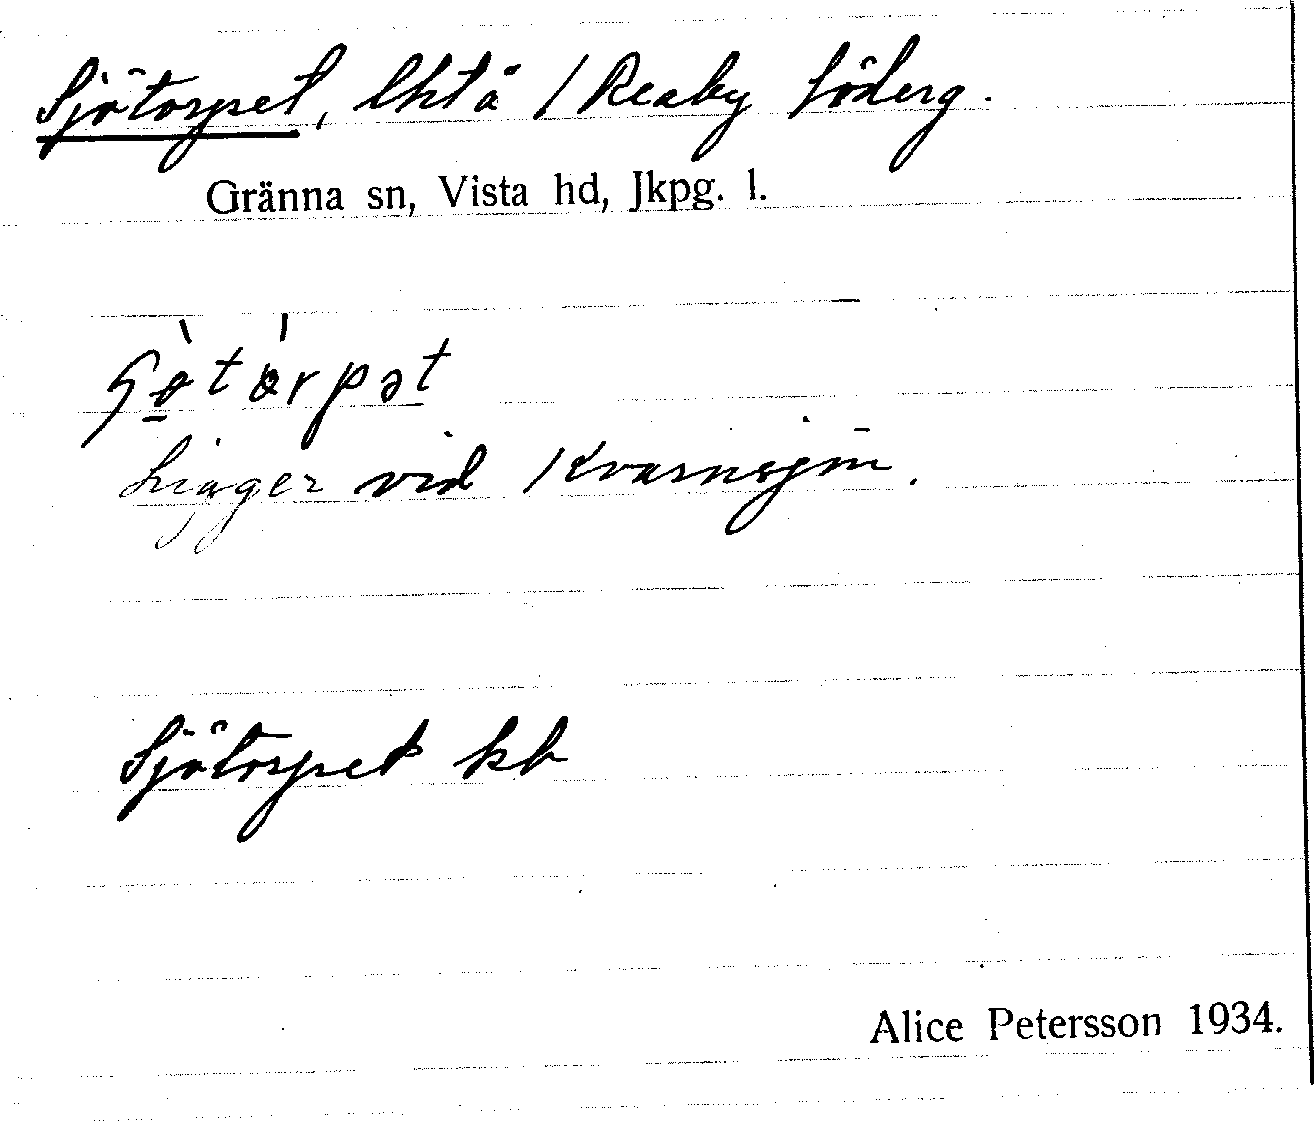 Sjötorpet, lht å /Reaby Söderg.
Gränna sn, Vista hd, Jkpg. l.
Ligger vid Kvarnsjön.
Sjötorpet kb
Alice Petersson 1934.